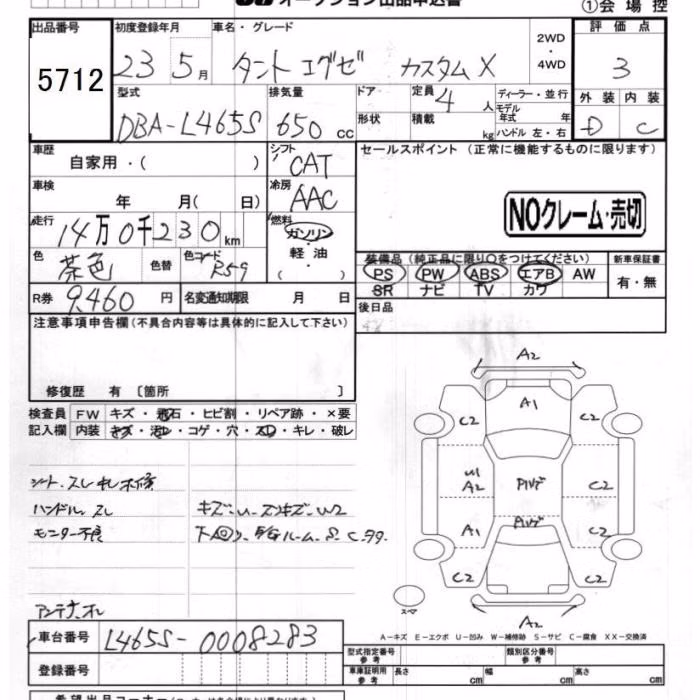 オークション出品申込書
①会場控
出品番号
5712
初度登録年月
23 5月
車名・グレード
タント エグゼ カスタムX
2WD
・
4WD
評価点
3
型式
DBA-L465S
排気量
650 cc
ドア・
形状
定員 4 人
積載 kg
ディーラー・並行
モデル
年式 年
ハンドル 左・右
外装 内装
D C
車歴
自家用・( )
シフト
CAT
セールスポイント (正常に機能するものに限ります)
車検
年 月( 日)
冷房
AAC
NOクレーム・売切
走行
14万0千230km
燃料
ガソリン
・
軽油
・
( )
色
茶色
色替
色コード
R59
装備品 (純正品に限り○をつけてください)
PS PW ABS エアB AW
SR ナビ TV カワ
新車保証書
有・無
R券 9,460 円
名変通知期限 月 日
後日品
注意事項申告欄(不具合内容等は具体的に記入して下さい)
修復歴 有 〔箇所 〕
検査員
記入欄
FW キズ・飛石・ヒビ割・リペア跡・×要
内装 キズ・汚レ・コゲ・穴・スレ・キレ・破レ
シート、スレ
ハンドルスレ
モニター不良
キズ・U・ズツキズ・W2
下回り、 ルーム、S、C、99.
アンテナ
A2
A1
C2 C2
U1
A2
P1ハゲ
C2
A1
P1ハゲ
C2
C2 C2
スペア
A2
A-キズ E-エクボ U-凹み W-補修跡 S-サビ C-腐食 XX-交換済
車台番号
L465S-0008283
登録番号
型式指定番号
参考
類別区分番号
参考
車庫証明用
参考
長さ cm
幅 cm
高さ cm